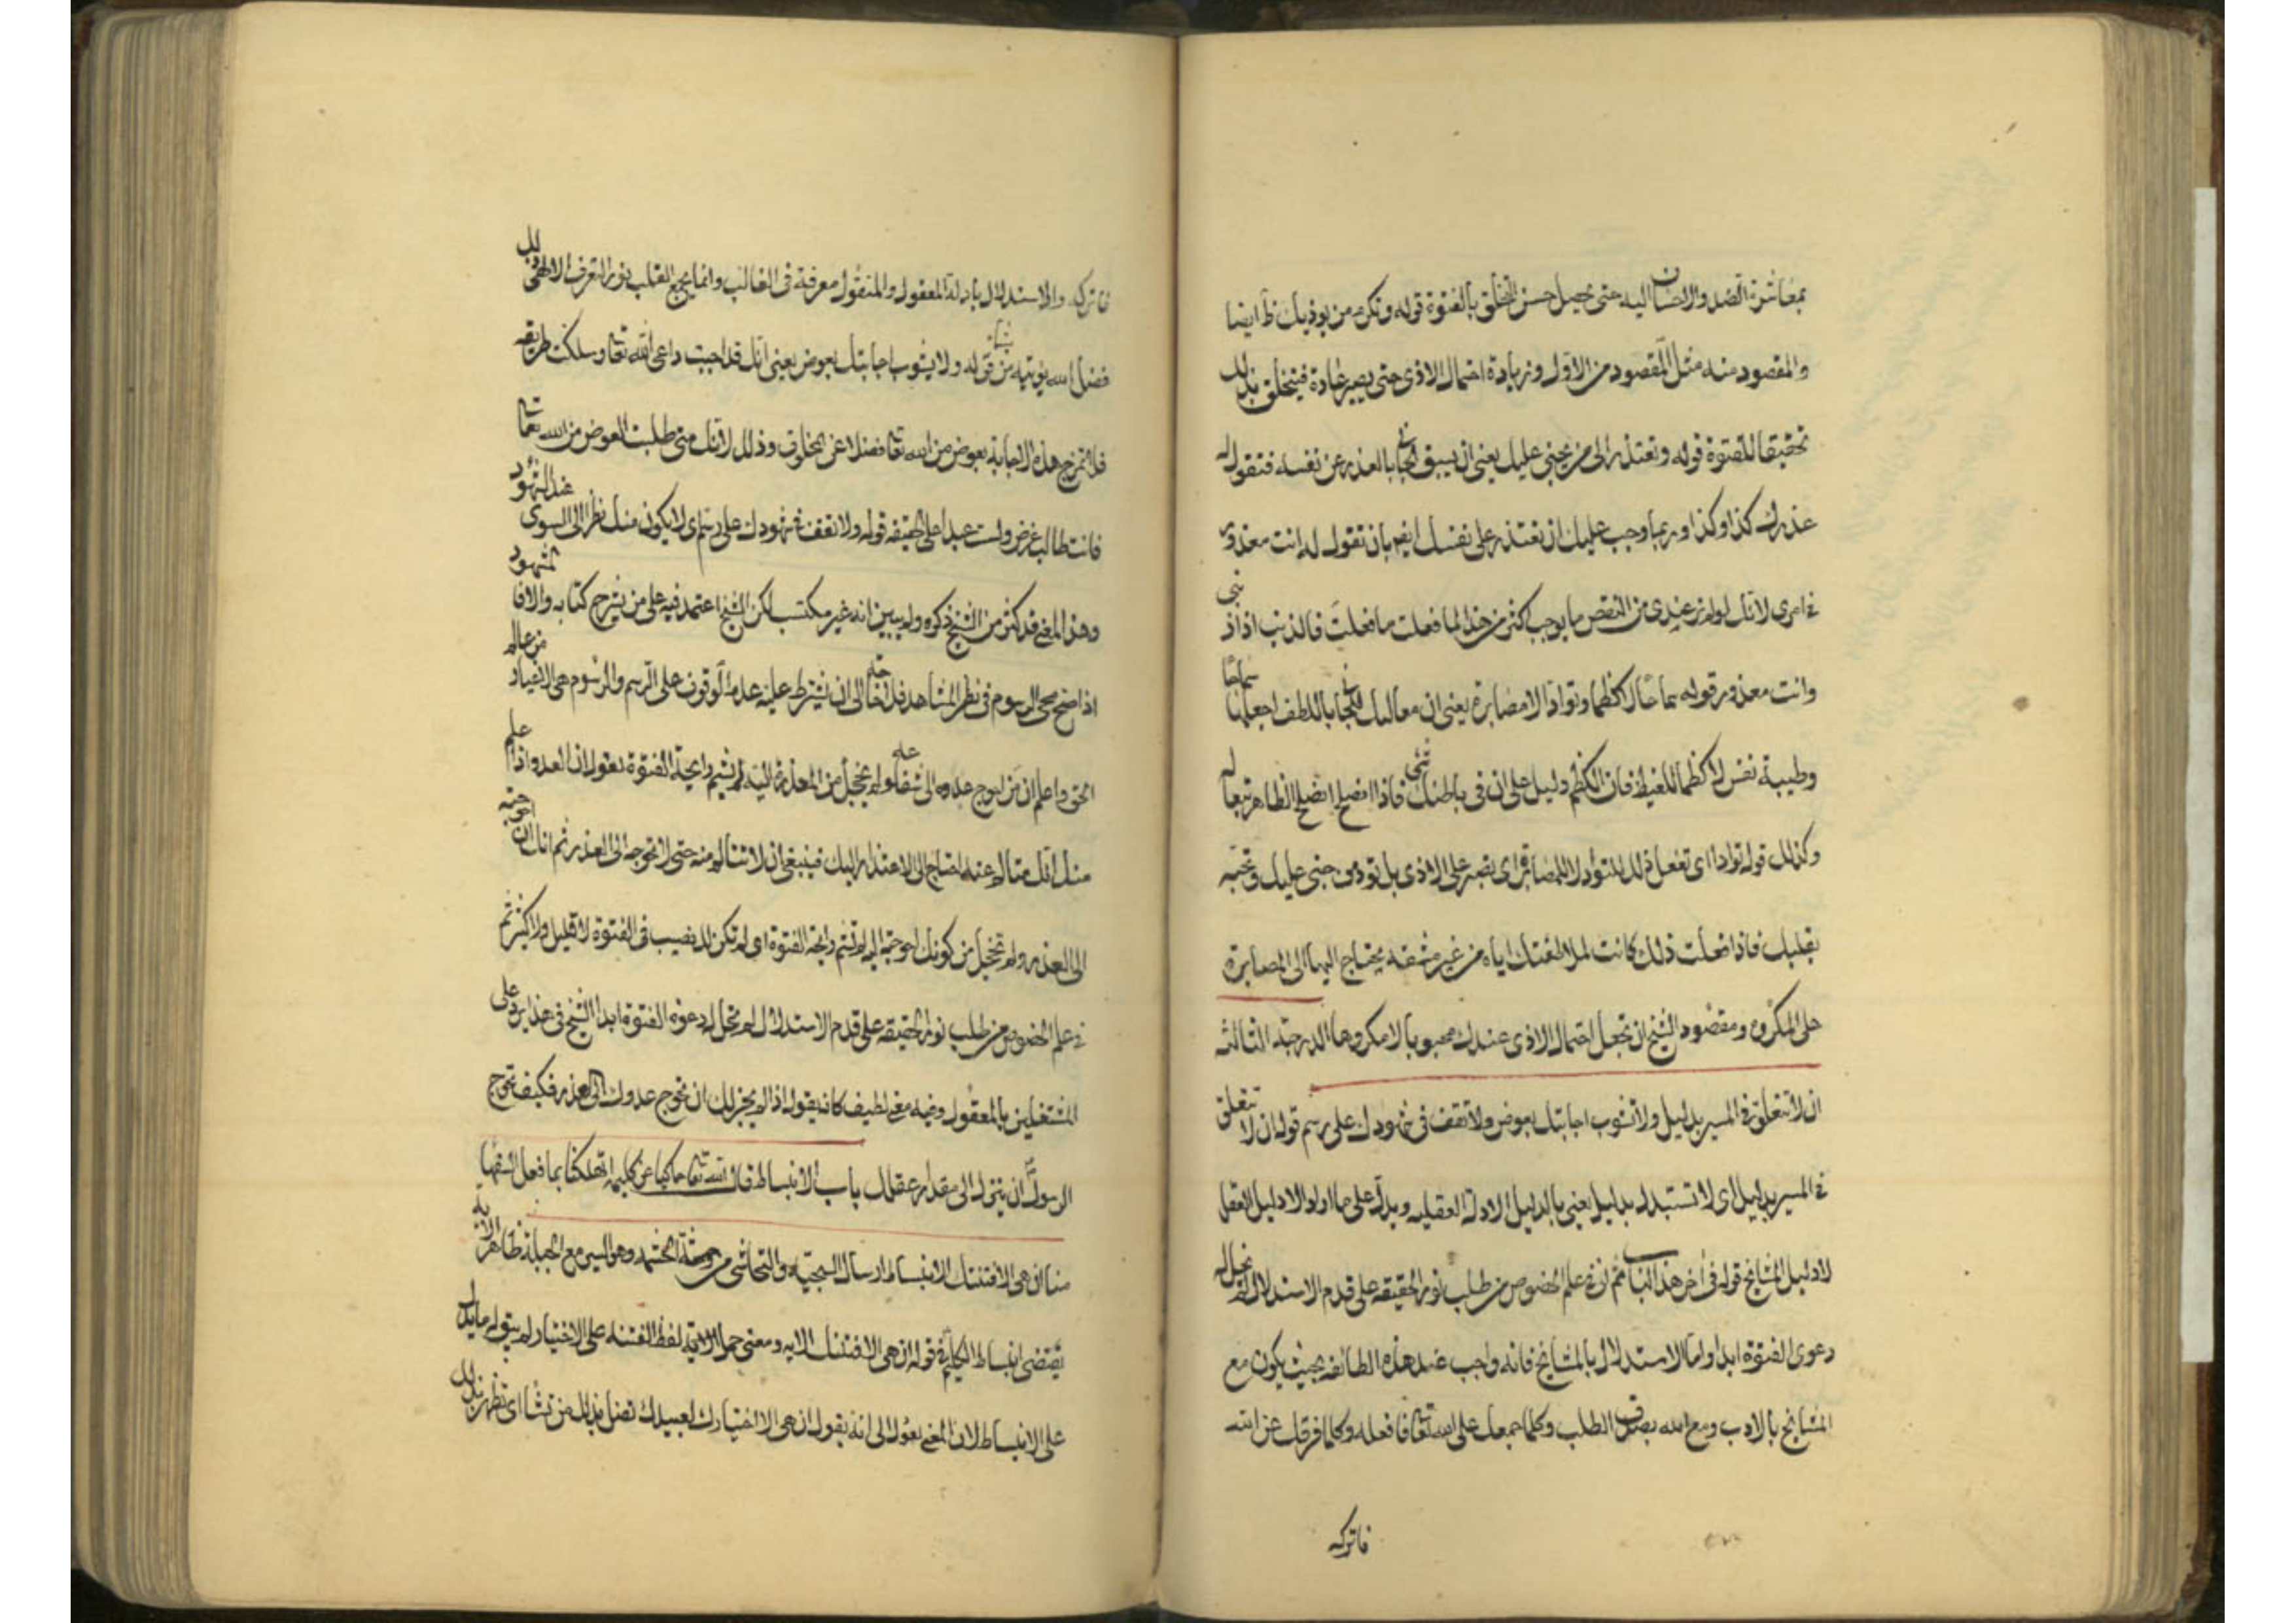 بمعاشرة الضد والاحسان اليه حتى يحصل حسن الخلق بالفتوة قوله وتكرم من يوذيك ظ ايضا
والمقصود منه مثل المقصود من الاول وزيادة احتمال الاذى حتى يصير عادة فيتخلق بذلك
تحقيقا للفتوة قوله وتعتذر الى من يجني عليك يعني ان يسبق الجاني بالعذر عن نفسه فتقول له
عذرك كذا وكذا وربما وجب عليك ان تعتذر على نفسك ايضا بان تقول له انت معذور
في امري لانك لو لم تر عندي من النقص ما يوجب اكثر من هذا لما فعلت ما فعلت فالذنب اذا ذنبي
وانت معذور قوله سماحا لا كظما وتوادا لا مصابرة يعني ان معاملتك للجاني باللطف اجعلها سماحا
وطيبة نفس لا كظما للغيظ فان الكظم دليل على ان في باطنك شي فاذا انصلح انصلح الظاهر تبعا له
وكذلك قوله توادا اي تفعل ذلك للتواد لا للمصابرة اي تصبر على الاذى بل تود من جنى عليك وتحبه
بقلبك فاذا فعلت ذلك كانت ملاطفتك اياه من غير مشقة يحتاج اليها الى المصابرة
على المكروه ومقصود الشيخ ان تجعل احتمال الاذى عندك محبوبا لا مكروها الدرجة الثالثة
ان لا تتعلق في المسير بدليل ولا تشوب اجابتك بعوض ولا تقف في شهودك على رسم قوله ان لا تتعلق
في المسير بدليل اي لا تستبدل بدليل يعني بالدليل الادلة العقلية ويدل على ما اولوا لا دليل العقل
لا دليل المشايخ قوله في اخر هذا الباب ثم ان في علم الخصوص من طلب نور الحقيقة على قدم الاستدلال لم تحل له
دعوى الفتوة ابدا واما الاستدلال بالمشايخ فانه واجب عند هذه الطائفة بحيث يكون مع
المشايخ بالادب ومع الله بصدق الطلب وكلما جمعك على الله تعالى فافعله وكلما فرقك عن الله
فاتركه
فاتركه والاستدلال بادلة المعقول والمنقول معرفة في الغالب وانما يجمع القلب بنور التعرف الالهي وذلك
فضل الله يؤتيه من يشاء قوله ولا يشوب اجابتك بعوض يعني انك قد اجبت داعي الله تعالى وسلكت طريقه
فلا تمزج هذه الاجابة بعوض من الله تعالى فضلا عن المخلوق وذلك لانك متى طلبت العوض من الله تعالى
فانت طالب غرض ولست عبدا على الحقيقة قوله ولا تقف في شهودك على رسم اي لا يكون منك نظر الى السوى عند الشهود
وهذا المعنى قد كثر من الشيخ ذكره ولم يبين انه غير مكتسب لكن الشيخ اعتمد فيه على من يشرح كتابه والا فالشهود
اذا صح محى الرسوم في نظر المشاهد فلا حاجة الى ان يشترط عليه عدم الوقوف على الرسم والرسوم هي الاغيار من عالم
الحق واعلم ان من احوج عدوه الى شفاعة ولم يخجل من المعذرة اليه لم يشم رايحة الفتوة يقول ان العدو اذا علم
منك انك متالم عنه احتاج الى الاعتذار اليك فينبغي ان لا تتالم منه حتى لا تحوجه الى العذر ثم انك ان احوجته
الى العذر ولم تخجل من كونك احوجته اليه لم تشم رايحة الفتوة اي لم تكن لك نصيب في الفتوة لا قليل ولا كثير ثم
في علم الخصوص من طلب نور الحقيقة على قدم الاستدلال لم تحل له دعوى الفتوة ابدا الشيخ في هذا يرد على
المشتغلين بالمعقول وفيه معنى لطيف كانه يقول اذا لم يجز لك ان تحوج عدوك الى العذر فكيف تحوج
الرسول ان ينزل الى مقدار عقلك باب الانبساط قال الله تعالى حاكيا عن كليمه اتهلكنا بما فعل السفها
منا ان هي الا فتنتك الانبساط ارسال السجية والتحاشي من وحشة الحشمة وهو السير مع الجبلة ظاهر الاية
يقتضي انبساط الكليم في قوله ان هي الا فتنتك الاية ومعنى حمل الاية لفظ الفتنة على الاختيار لم يبق له ما يدل
على الانبساط لان المعنى يعول الى انه يقول ان هي الا اختيارك لعبيدك تضل بذلك من تشا اي تظهر بذلك